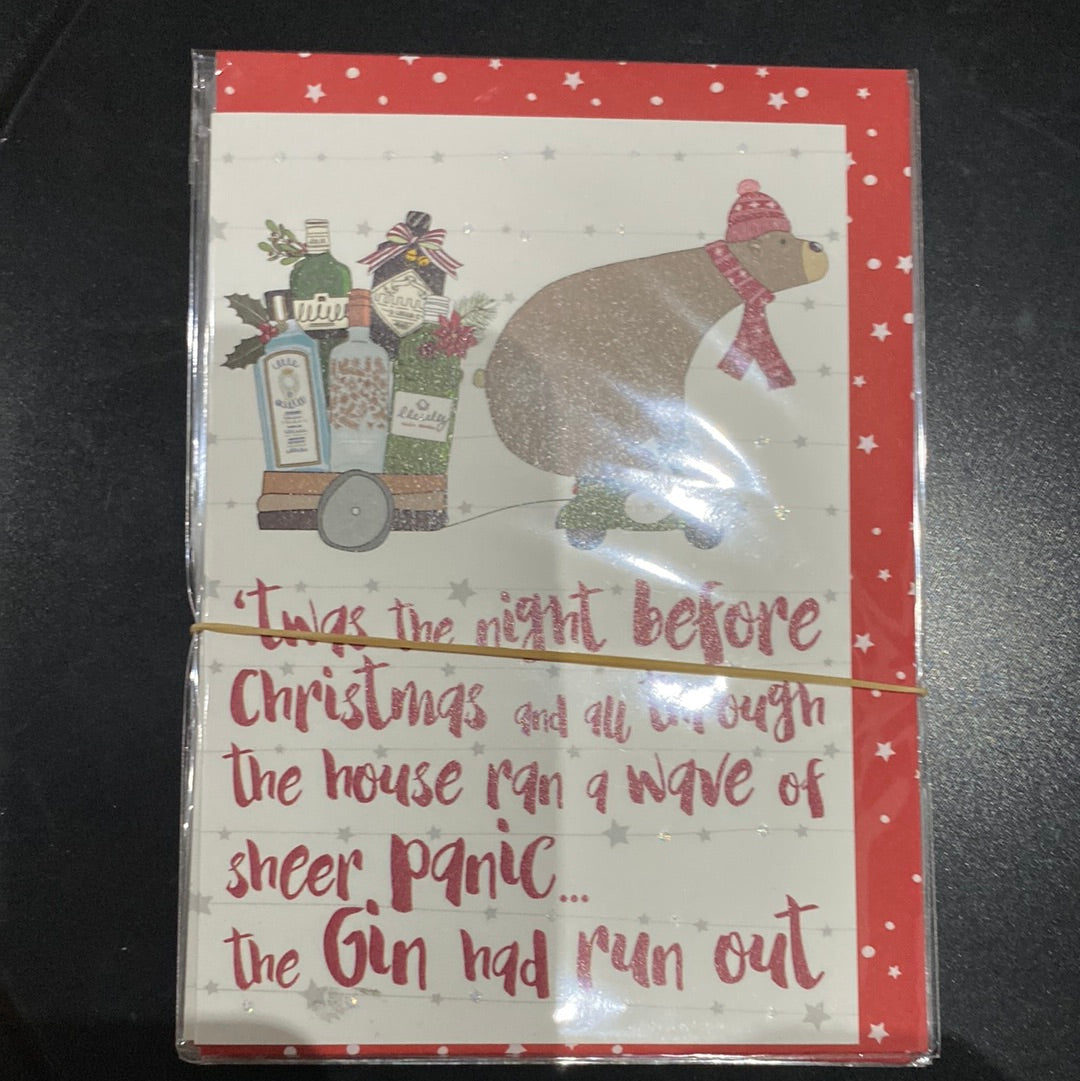 'twas the night before
Christmas and all through
the house ran a wave of
sheer panic...
the Gin had run out